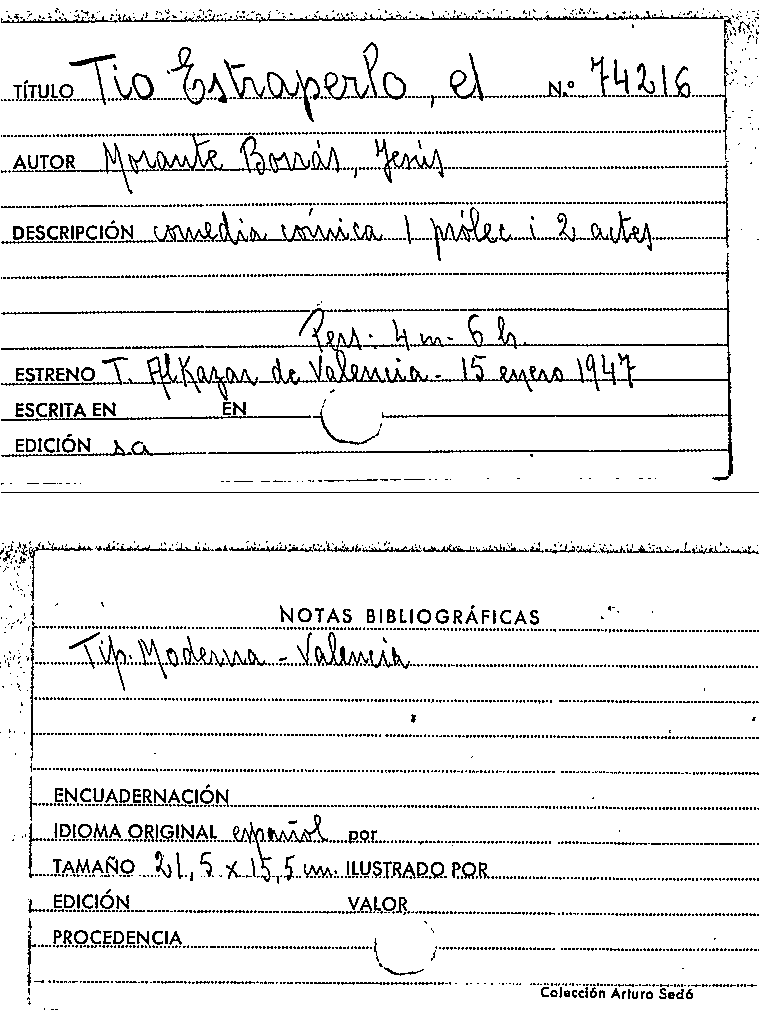 TÍTULO Tio Estraperlo, el N.º 74216
AUTOR Morante Borrás, Jesús
DESCRIPCIÓN comedia cómica 1 pròlec i 2 actes
Pers: 4 m. 6 h.
ESTRENO T. Alkazar de Valencia - 15 enero 1947
ESCRITA EN EN
EDICIÓN s.a
NOTAS BIBLIOGRÁFICAS
Tip. Moderna - Valencia
ENCUADERNACIÓN
IDIOMA ORIGINAL español por
TAMAÑO 21,5 x 15,5 cm. ILUSTRADO POR
EDICIÓN VALOR
PROCEDENCIA
Colección Arturo Sedó